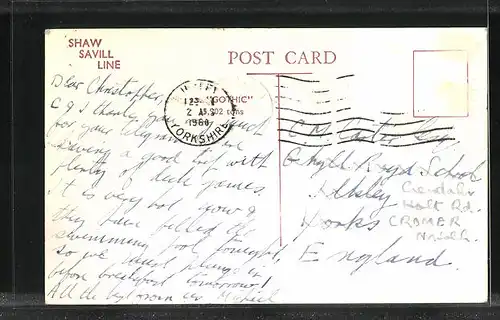 SHAW
SAVILL
LINE
POST CARD
"GOTHIC"
15,902 tons
1960
YORKSHIRE
Dear Christopher,
thank you very much
for your telegram. We are
having a good trip with
plenty of deck games.
It is very hot now &
they have filled the
swimming pool tonight,
so we can plunge in
before breakfast tomorrow!
All the best from
Royd School
Ilkley
Yorks
England.
Holt Rd.
CROMER
Norfolk